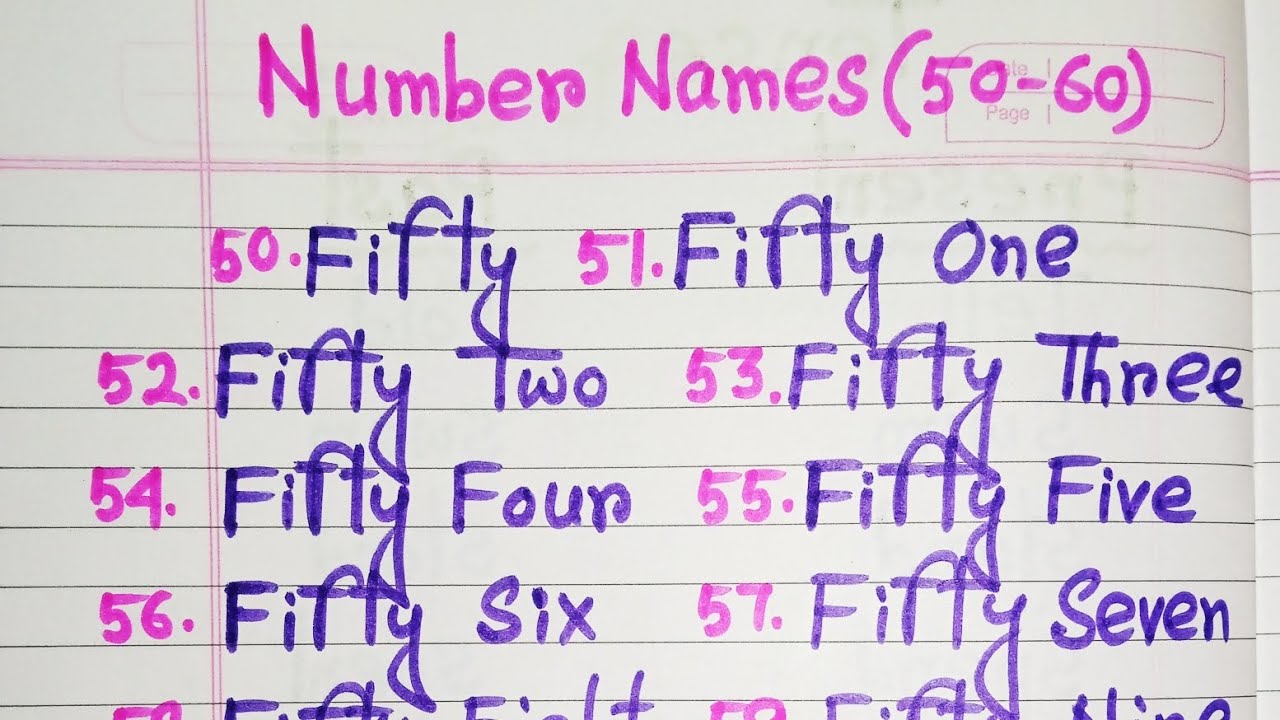 Number Names (50-60)
Date
Page
50. Fifty 51. Fifty One
52. Fifty Two 53. Fifty Three
54. Fifty Four 55. Fifty Five
56. Fifty Six 57. Fifty Seven
58. Fifty Eight 59. Fifty Nine